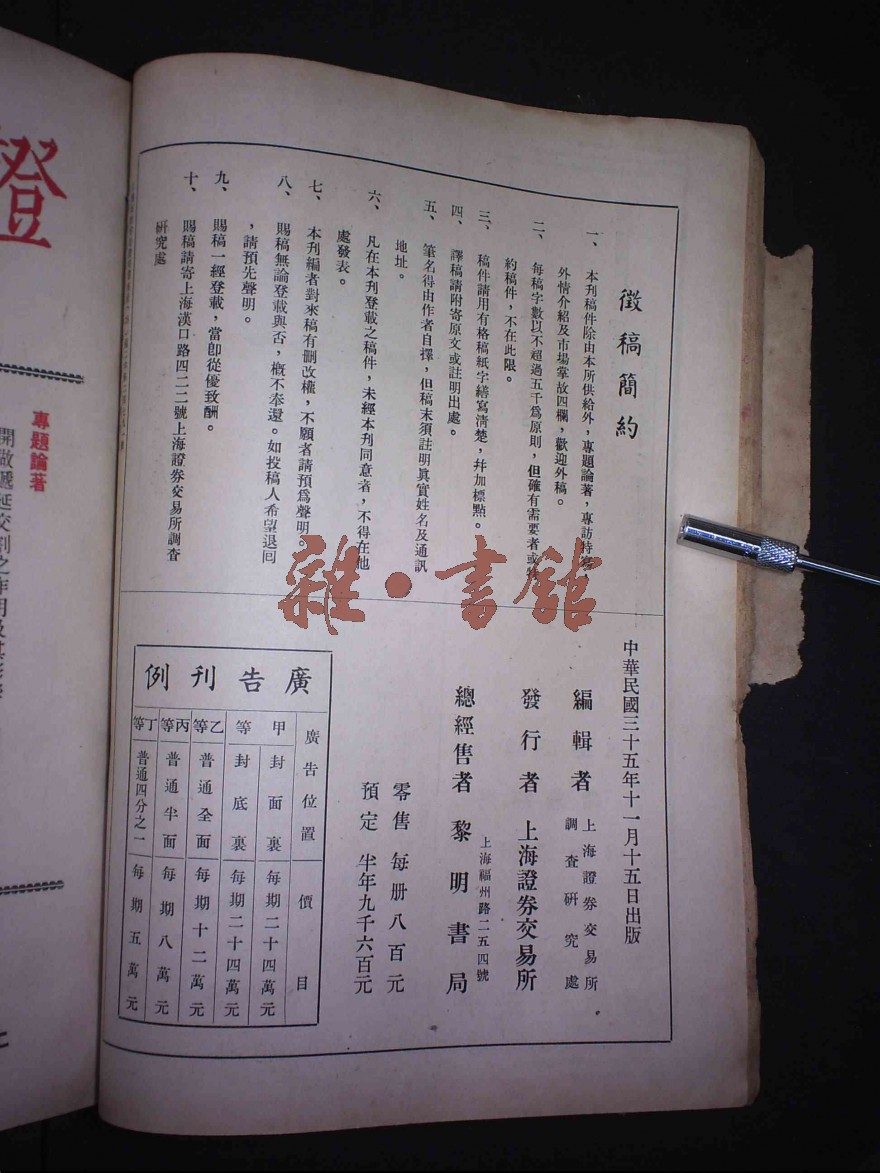 徵稿簡約
一、本刊稿件除由本所供給外，專題論著，專訪特寫，
外情介紹及市場掌故四欄，歡迎外稿。
二、每稿字數以不超過五千爲原則，但確有需要者或特
約稿件，不在此限。
三、稿件請用有格稿紙字繕寫清楚，幷加標點。
四、譯稿請附寄原文或註明出處。
五、筆名得由作者自擇，但稿末須註明眞實姓名及通訊
地址。
六、凡在本刊登載之稿件，未經本刊同意者，不得在他
處發表。
七、本刊編者對來稿有刪改權，不願者請預爲聲明。
八、賜稿無論登載與否，概不奉還。如投稿人希望退囘
，請預先聲明。
九、賜稿一經登載，當卽從優致酬。
十、賜稿請寄上海漢口路四二二號上海證券交易所調查
研究處
中華民國三十五年十一月十五日出版
編輯者 上海證券交易所
調查研究處
發行者 上海證券交易所
總經售者 黎明書局
上海福州路二五四號
零售 每册八百元
預定 半年九千六百元
廣告刊例
廣告位置 價目
甲等 封面裏 每期二十四萬元
封底裏 每期二十四萬元
乙等 普通全面 每期十二萬元
丙等 普通半面 每期八萬元
丁等 普通四分之一 每期五萬元
雜·書館
專題論著